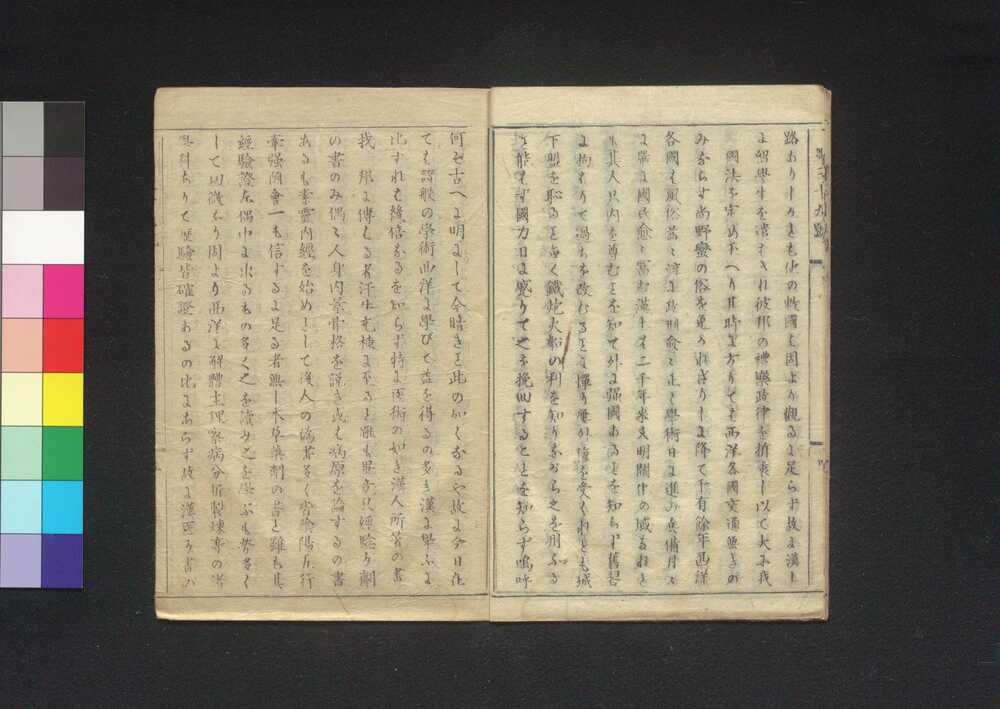 路ありしかとも他の數國も固より觀るよ足らず故よ漢し
よ留學生を渡され彼邦の禮樂政律を折衷し以て大に我
國法を定め玉へり其時よ方りても西洋各國交通無きの
みならず尚野蠻の俗を免されざりしよ降て千有餘年西洋
各國も風俗益〻淳よ政刑愈〻正し學術日よ進み兵備月〻
よ嚴よ國民愈〻富む漢土も二千年來文明開化の域なれと
も其人只内を尊むことを知て外よ強國あることを知らず舊習
よ拘りて過ちを改むることよ憚り屢外侮を受くれとも城
下盟を恥ること無く鐵炮大船の利を知りながら之を用ふる
こと能もず國力日よ蹙りて之を挽回することを知らず嗚呼
何そ古へよ明よして今暗きこと此の如くなるや故よ今日在
ても諸般の學術西洋よ學びて益を得るの多き漢よ學ふよ
比すれも幾倍なるを知らず特よ醫術の如き漢人所著の書
我 邦よ傳しる者汗牛充棟よ至ると雖も單方の經驗の劑
の書のみ偶〻人身内景骨格を説き或も病原を論するの書
あるも素靈内經を始めとして後人の僞著多く皆陰陽五行
牽強附會一も信するよ足る者無し本草藥劑の書と雖も其
經驗證左偶中よ出るもの多く之を讀み之を學ふも勞多く
して功微なり固より西洋よ解體生理察病分析製煉等の諸
學科ありて歴驗皆確證あるの比よあらず故よ漢醫の書の